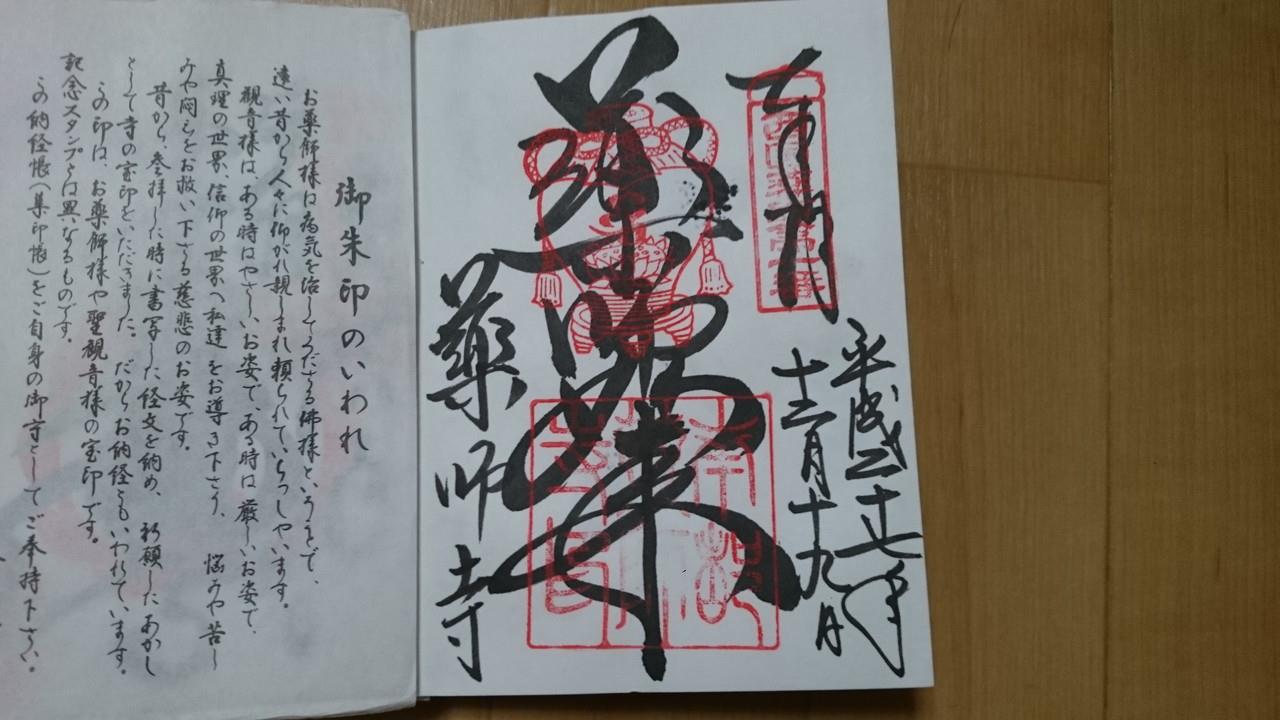 奉拝
平成二十七年
十二月十九日
薬師如来
藥師寺
御朱印のいわれ
お薬師様は病気を治してくださる佛様ということで、
遠い昔から人々に仰がれ親しまれ頼られていらっしゃいます。
観音様は、ある時はやさしいお姿で、ある時は厳しいお姿で、
真理の世界、信仰の世界へ私達をお導き下さり、悩みや苦し
みや悶えをお救い下さる慈悲のお姿です。
昔から、参拝した時に書写した経文を納め、祈願したあかし
として寺の宝印をいただきました。だからお納経ともいわれています。
この印は、お薬師様や聖観音様の宝印です。
記念スタンプとは異なるものです。
この納経帳(集印帳)をご自身の御守としてご奉持下さい。